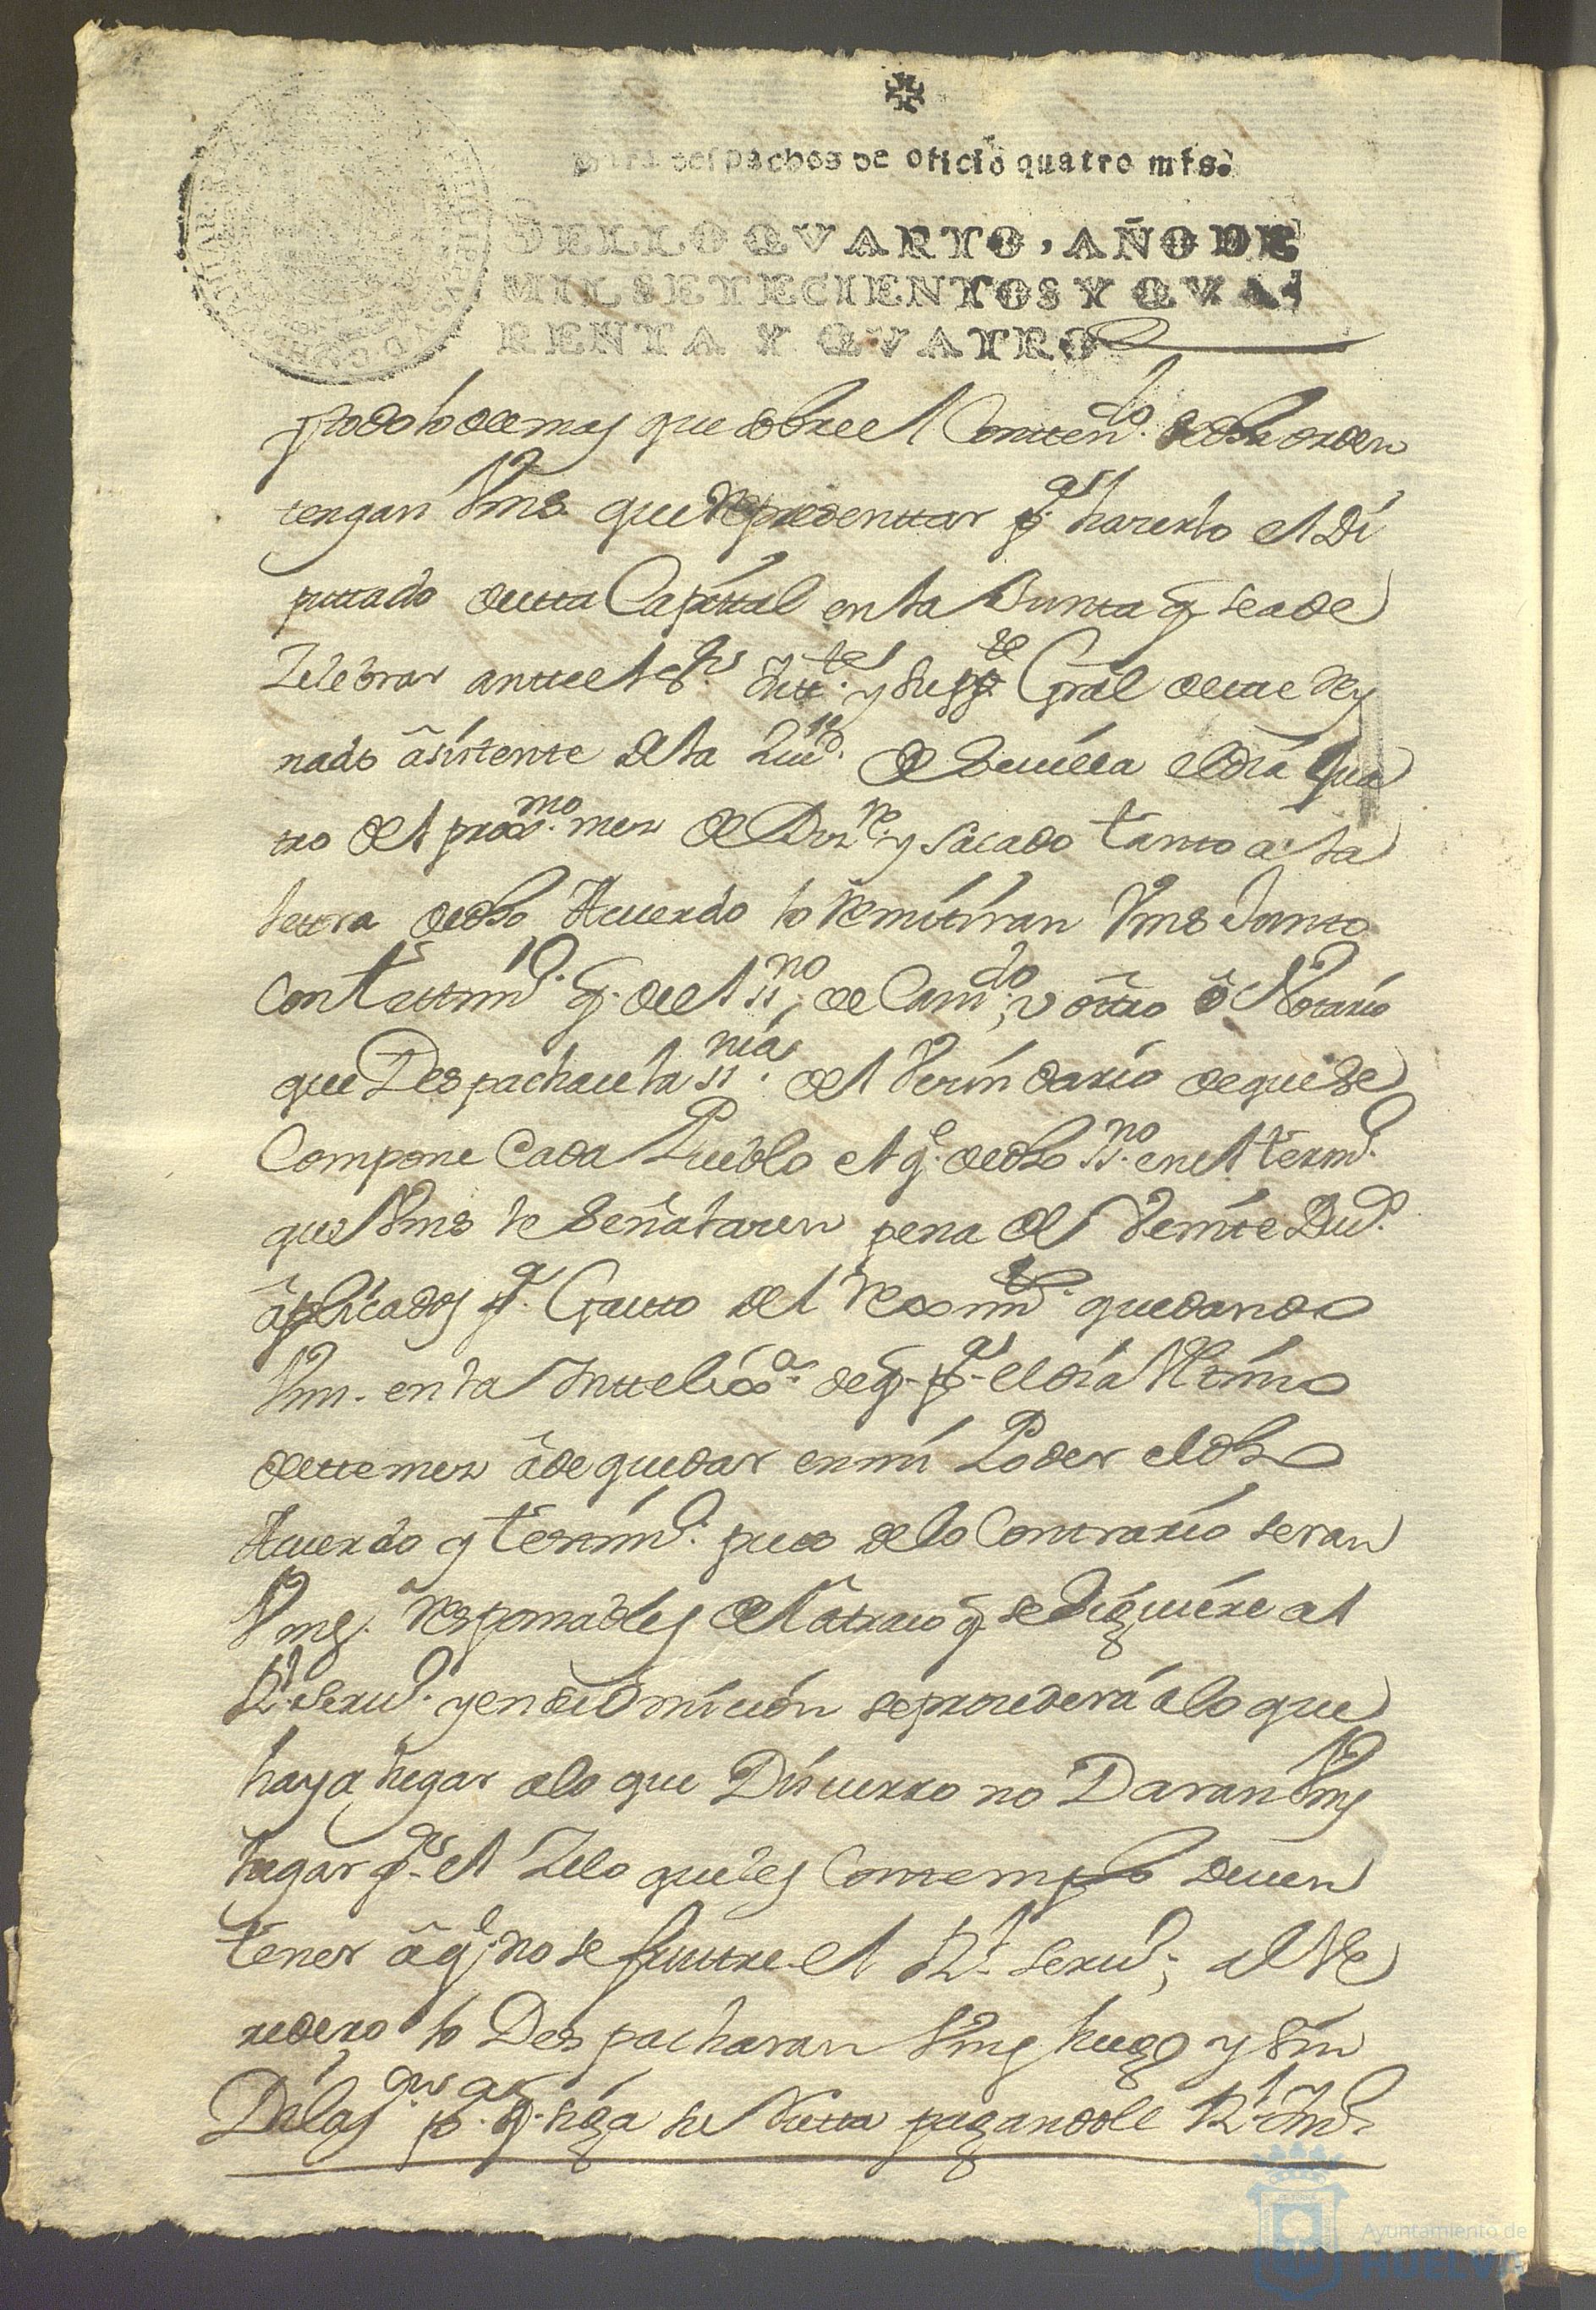 Para despachos de oficio quatro mrs.
SELLO QVARTO, AÑO DE
MIL SETECIENTOS Y QVA-
RENTA Y QVATRO
y todo lo demas que sobre el Conten.do de dha orden
tengan Vms que Representtar p.a hacerlo el Di
puttado de etta Capittal en la Junta q se a de
Zelebrar antte el s.or Intt.te y Supp.te Gral de este Rey
nado asistente de la Ciu.d de Sevilla el dia qua
tro del prox.mo mes de Diz.re y sacado tanto a la
letra de dho Acuerdo lo Remitiran Vms Junto
Con Testtim.o q. de el ss.no de Cavi.do, v otro o Notario
que Despachare la ss.nia del Vecindario de que se
Compone Cada Pueblo el q.e de dho ss.no en el term.o
que Vms le señalaren pena de Veinte Du.s
aplicados p.a Gasto del Rexim.to quedando
Vm. en la Intteligx.a de q. p.a el dia Vltimo
de ette mes a de quedar en mi Poder el dho
Acuerdo y testim.o pues de lo Contrario seran
Vms. Responsables del atraso q se siguiere al
R.l Serv.o y en su Omicion se procedera a lo que
haya lugar a lo que Discurro no Daran Vms
lugar p.r el Zelo que les Contemplo Deven
tener a q.e no se frustre el R.l Serv.o; al Ve
redero lo Despacharan Vms luego y sin
Dilas.on p.a q. siga su Rutta pagandole R.s Vn.
Ayuntamiento de
HUELVA